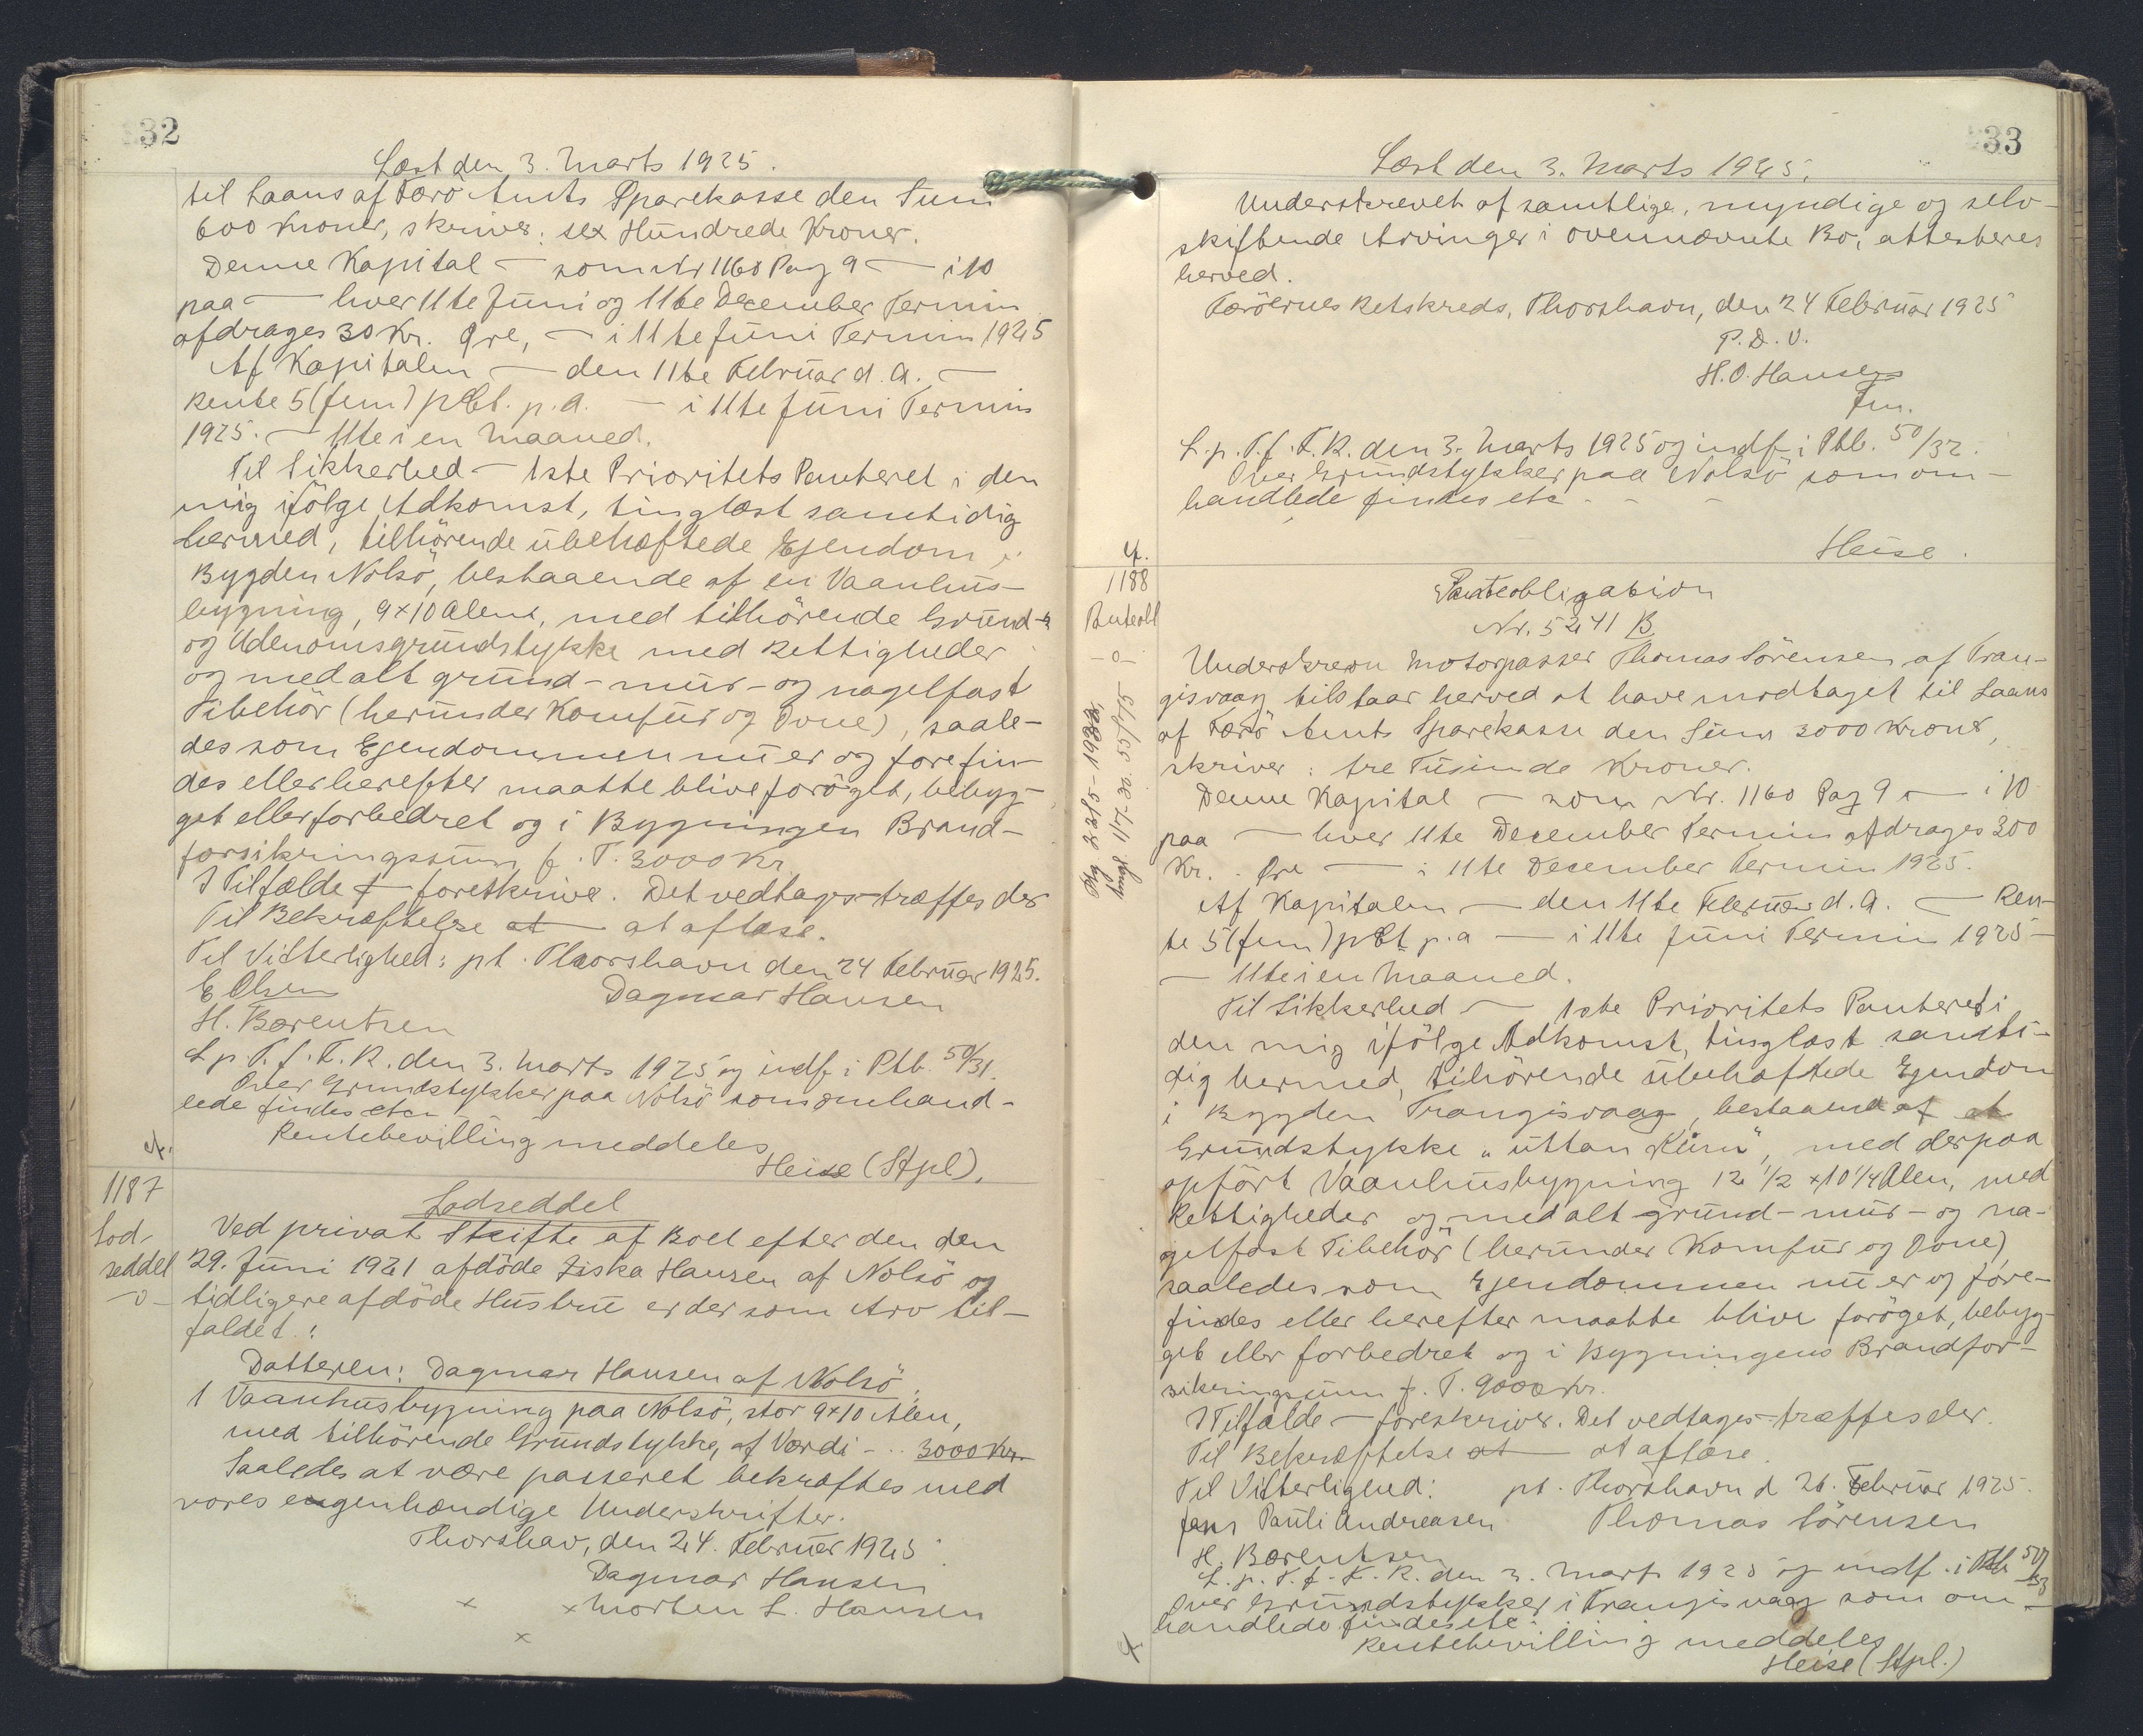 32
Læst den 3. Marts 1925.
til Laans af Færö Amts Sparekasse den Sum
600 Kroner, skriver: sex Hundrede Kroner.
Denne Kapital — som Nr 1160 Pag 9 — i 10
paa — hver 11te Juni og 11te December Termin
afdrages 30 Kr. Øre, — i 11te Juni Termin 1925
Af Kapitalen — den 11te Februar d. A. —
Rente 5 (fem) pCt. p. A. — i 11te Juni Termin
1925. — 11te i en Maaned.
Til Sikkerhed — 1ste Prioritets Panteret i den
mig ifölge Adkomst, tinglæst samtidig
hermed, tilhörende ubehæftede Ejendom i
Bygden Nolsö, bestaaende af en Vaanhus-
bygning, 9×10 Alens, med tilhörende Grund-
og Udenomsgrundstykke med Rettigheder
og med alt grund- mur- og nagelfast
Tibehör (herunder Komfur og Ovne), saale-
des som Ejendommen nu er og forefin-
des eller herefter maatte blive foröget, bebyg-
get eller forbedret og i Bygningen Brand-
forsikringssum p. T. 3000 Kr.
I Tilfælde — foreskrive. Det vedtages træffes der
Til Bekræftelse at — at aflæse.
Til Vitterlighed: pt. Thorshavn den 24 Februar 1925.
E Olsen Dagmar Hansen
H. Bærentsen
L. p. T. f. F. R. den 3. Marts 1925 og indf i Ptb. 50/31.
Over Grundstykker paa Nolsö som omhand-
lede findes etc
Rentebevilling meddeles
Heise (Stpl).
1187
Lod-
seddel
-0-
Lodseddel
Ved privat Skifte af Boet efter den den
29. Juni 1921 afdöde Ziska Hansen af Nolsö og
tidligere afdöde Hustru er der som Arv til-
faldet:
Datteren: Dagmar Hansen af Nolsö.
1 Vaanhusbygning paa Nolsö, stor 9×10 Alen,
med tilhörende Grundstykke, af Værdi - .. 3000 Kr.
Saaledes at være passeret bekræftes med
vores eugenhændige Underskrifter.
Thorshav, den 24. Februar 1925.
Dagmar Hansen
× × Morten L. Hansen
×
33
Læst den 3. Marts 1925.
Underskrevet af samtlige, myndige og selv-
skiftende Arvinger i ovennævnte Bo, attesteres
herved.
Færöernes Retskreds, Thorshavn, den 24 Februar 1925
P. D. V.
H. O. Hansen
Fm.
L. p. T. f. F. R. den 3. Marts 1925 og indf i Ptb. 50/32.
Over Grundstykker paa Nolsö som om-
handlede findes etc - - -
Heise.
1188
Panteobl
-0-
Panteobligation
Nr. 5241 B
Underskreven Motorpasser Thomas Sörensen af Tran-
gisvaag tilstaar herved at have modtaget til Laans
af Færö Amts Sparekasse den Sum 3000 Kroner,
skriver: tre Tusinde Kroner.
Denne Kapital — som Nr. 1160 Pag 9 — i 10
paa — hver 11te December Termin afdrages 300
Kr. . Øre — i 11te December Termin 1925.
Af Kapitalen — den 11te Februar d. A. — Ren-
te 5 (fem) pCt p. a — i 11te Juni Termin 1925 —
— 11te i en Maaned.
Til Sikkerhed — 1ste Prioritets Panteret i
den mig ifölge Adkomst, tinglæst samti-
dig hermed, tihörende ubehæftede Ejendom
i Bygden Trangisvaag, bestaaende af et
Grundstykke „uttan Kúrú", med derpaa
opfört Vaanhusbygning 12 1/2 × 10 1/4 Alen, med
Rettigheder og med alt grund- mur- og na-
gelfast Tibehör (herunder Komfur og Ovne)
saaledes som Ejendommen nu er og fore-
findes eller herefter maatte blive foröget, bebyg-
get eller forbedret og i Bygningens Brandfor-
sikringssum p. T. 9000 Kr.
I Tilfælde — foreskriver. Det vedtages træffes der.
Til Bekræftelse at — at aflæse.
Til Vitterlighed: pt. Thorshavn d 26. Februar 1925.
Jens Pauli Andreasen Thomas Sörensen
H. Bærentsen
L. p. T. f. F. R. den 3. Marts 1925 og indf. i Ptb 50/33
Over Grundstykker i Trangisvaag som om-
handlede findes etc.
Rentebevilling meddeles
Heise (Stpl.)